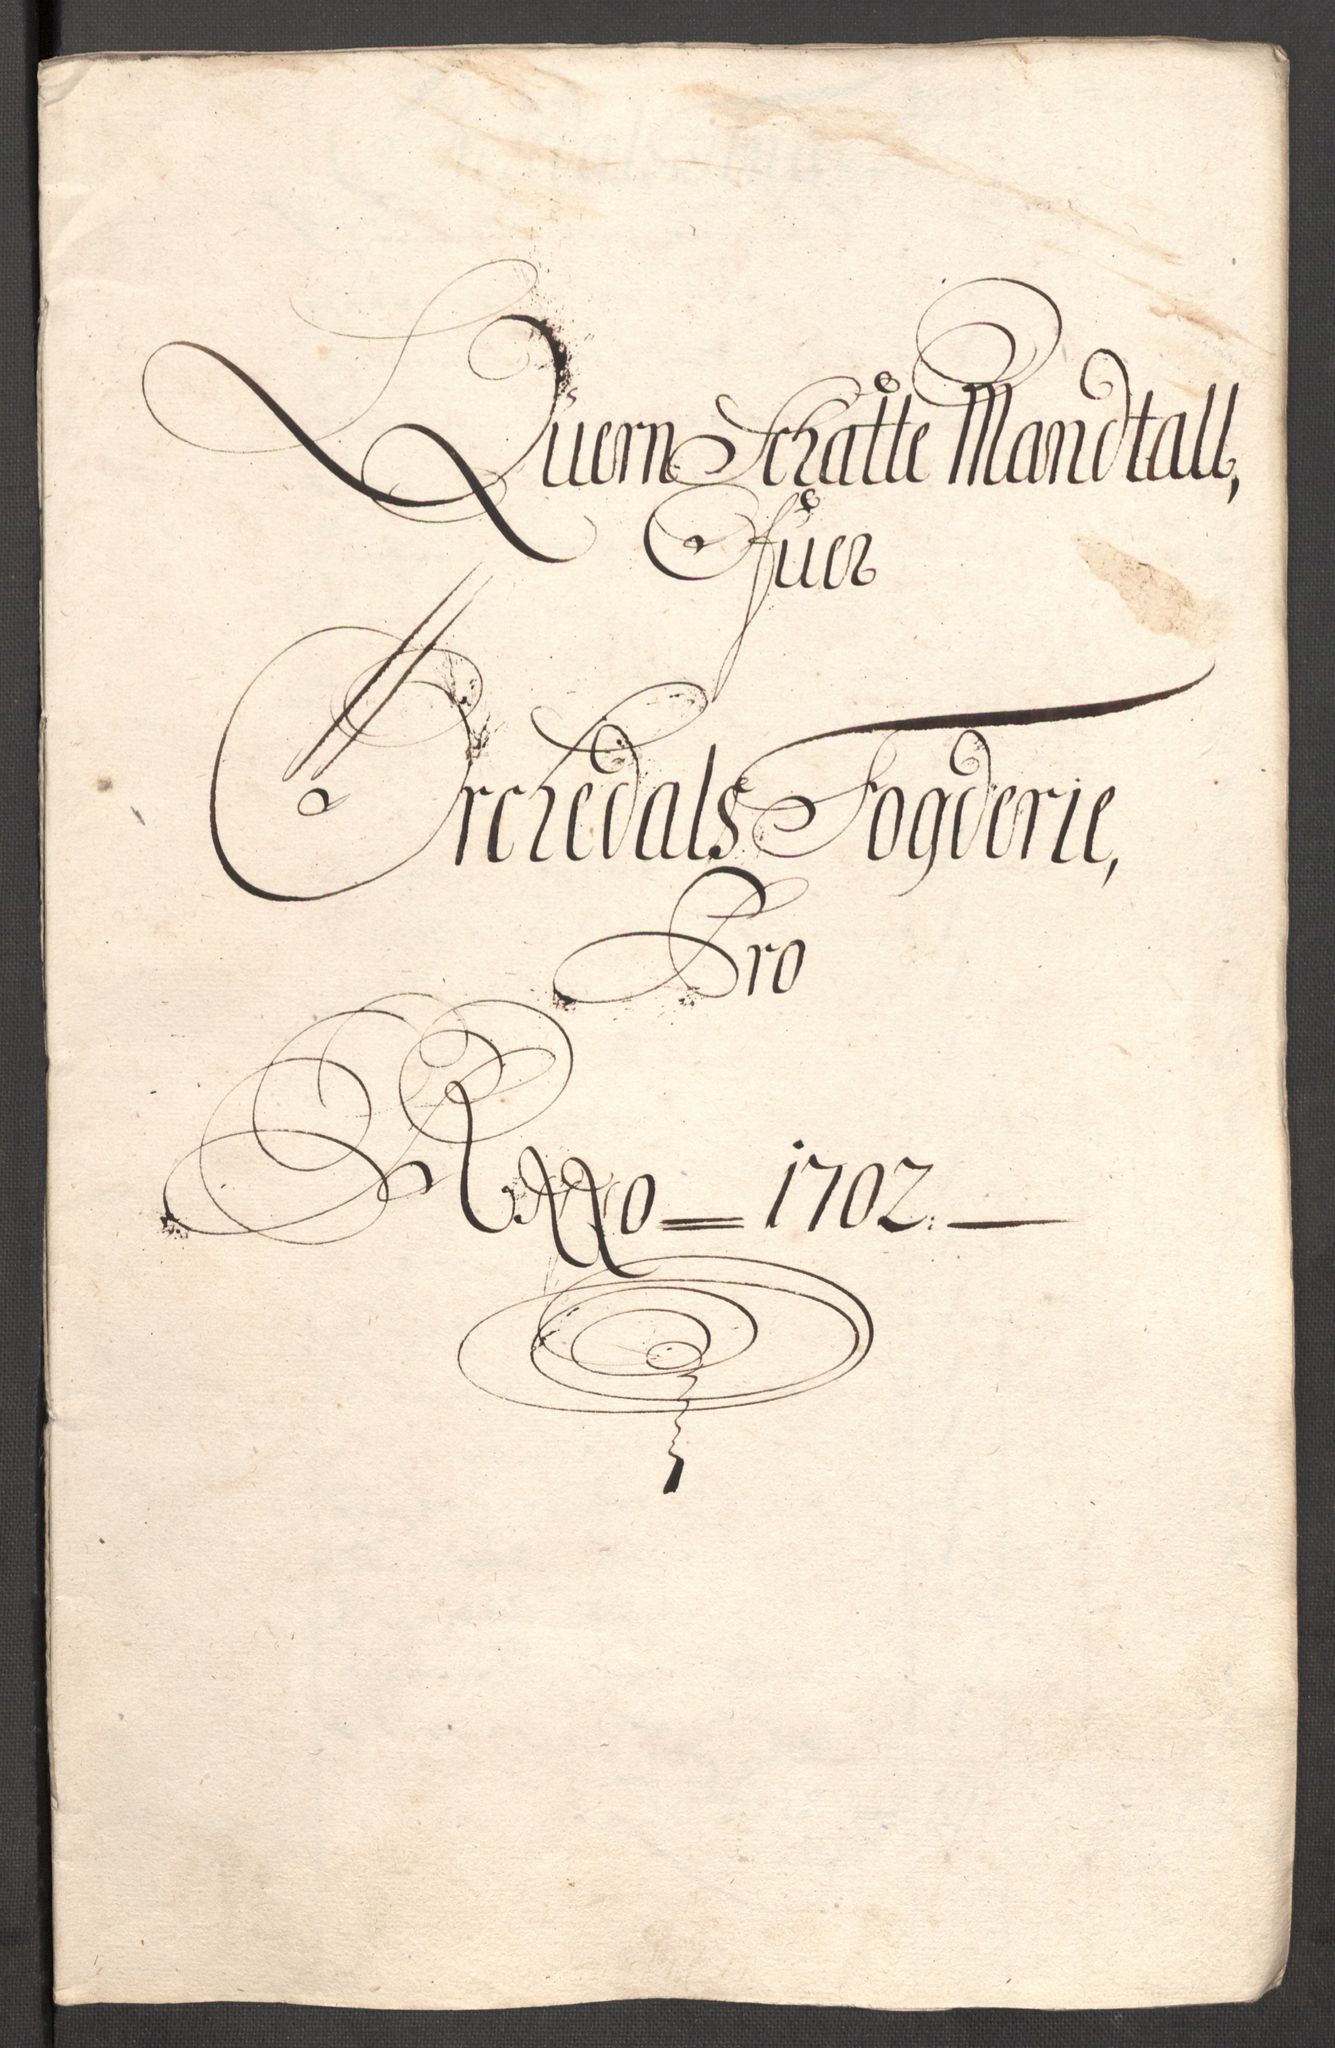 Quern Schatte Mandtall,
Ofuer
Orchedals Fogderie,
Pro
Anno 1702.